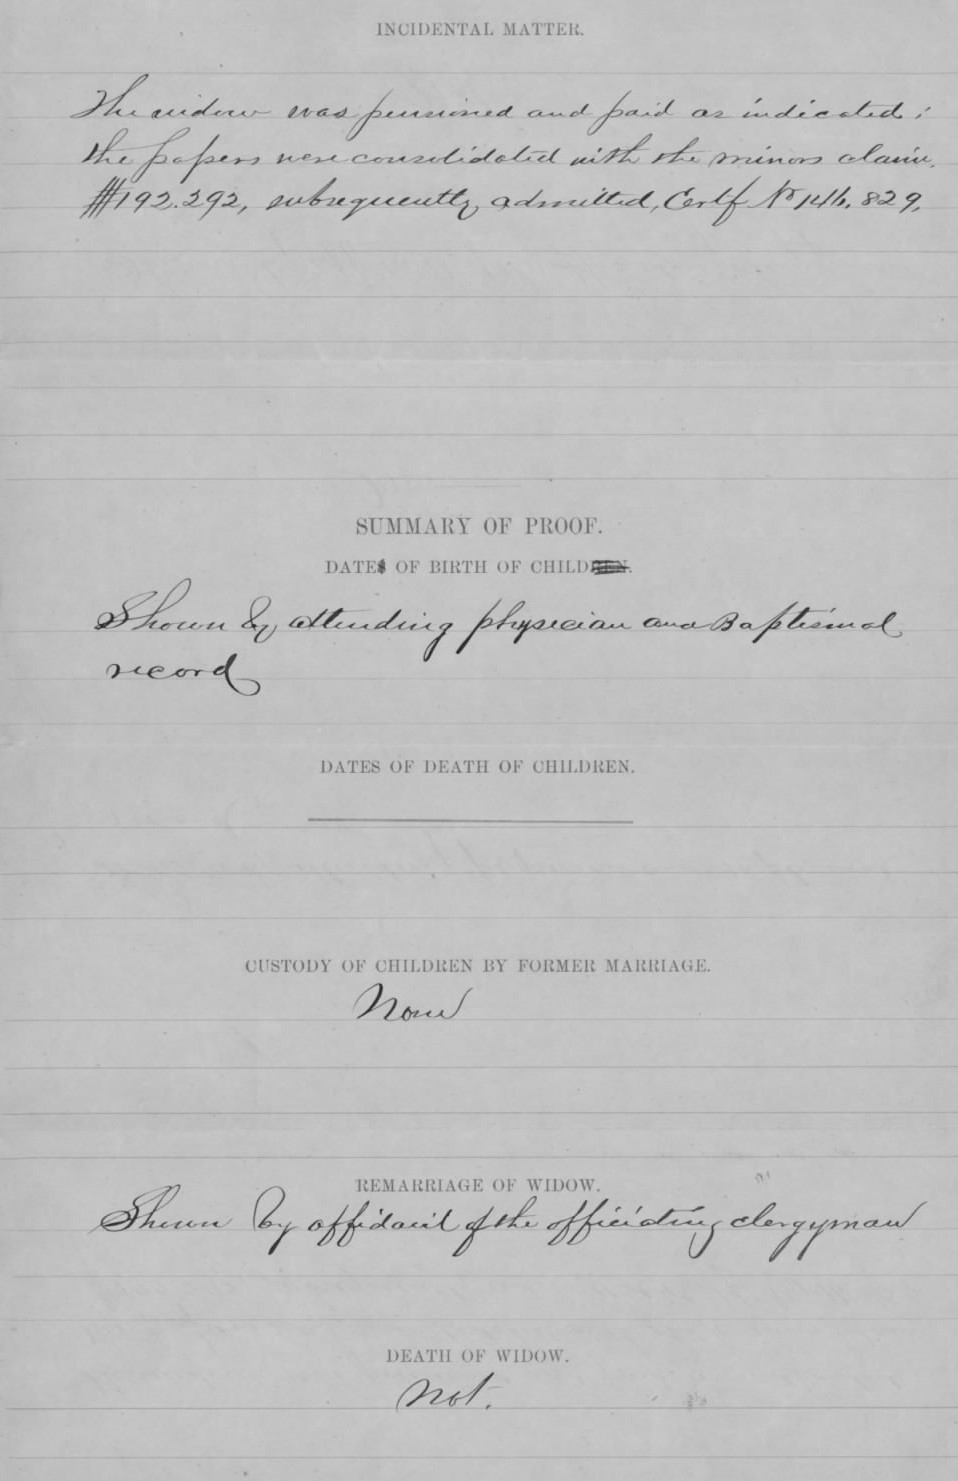 INCIDENTAL MATTER.
The widow was pensioned and paid as indicated;
the papers were consolidated with the minors claim,
#192.292, subsequently admitted, Certf No 146.829.
SUMMARY OF PROOF.
DATE OF BIRTH OF CHILD
Shown by attending physician and Baptismal
record
DATES OF DEATH OF CHILDREN.
CUSTODY OF CHILDREN BY FORMER MARRIAGE.
None
REMARRIAGE OF WIDOW.
Shown by affidavit of the officiating clergyman
DEATH OF WIDOW.
Not.